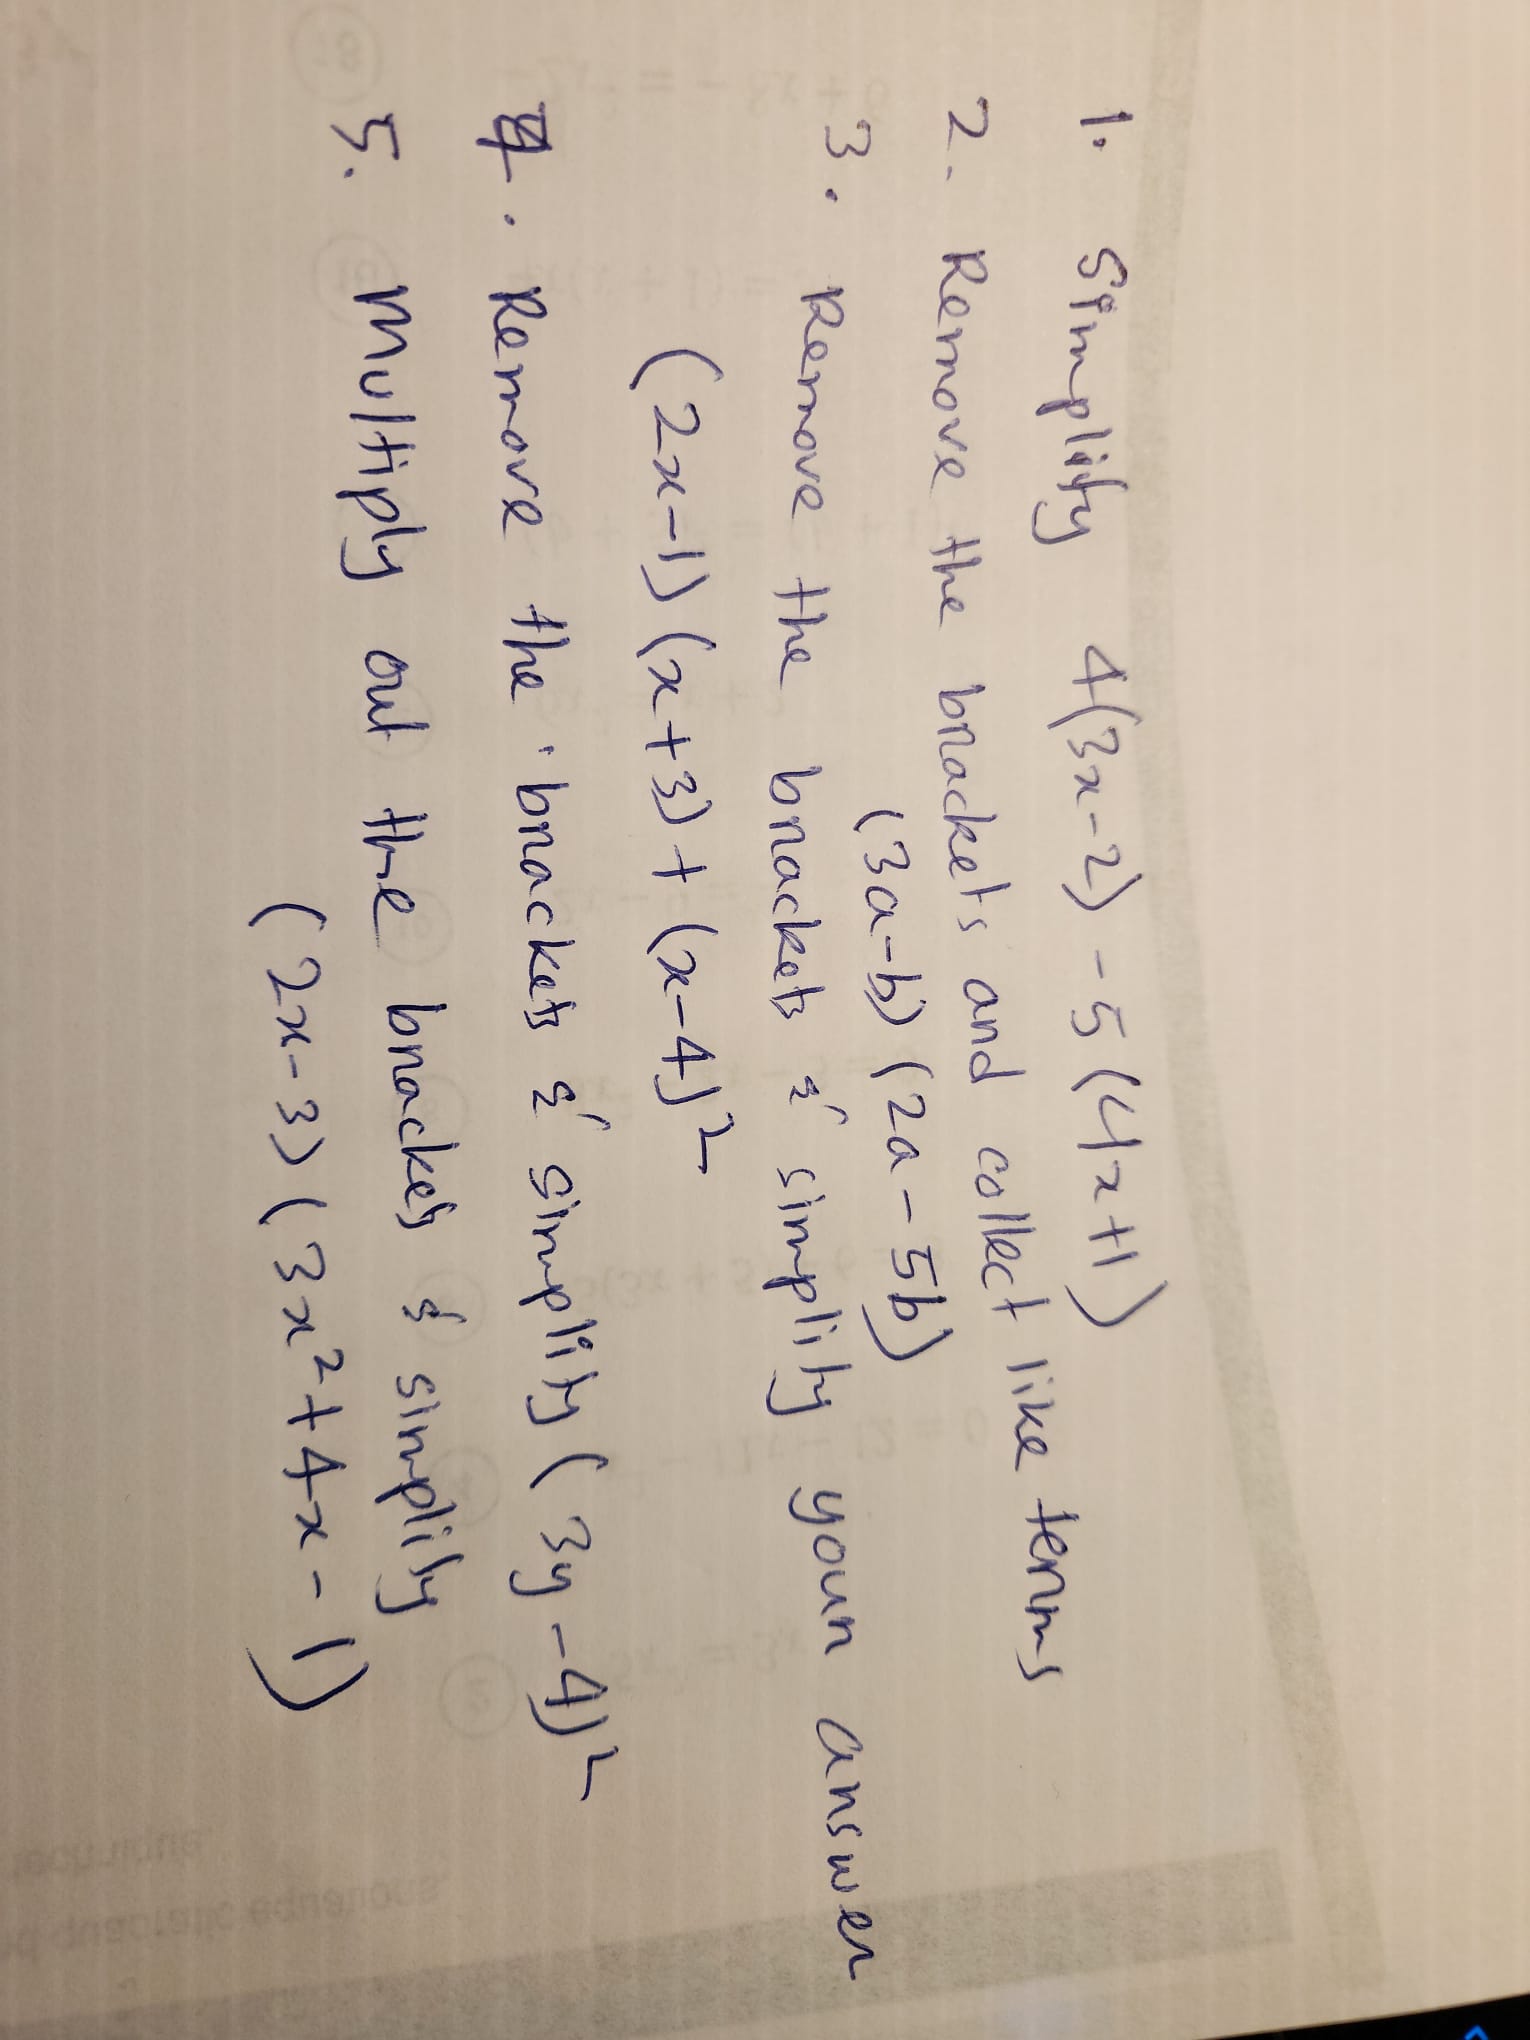 1. Simplify 4(3x-2) - 5(4x+1)
2. Remove the brackets and collect like terms
(3a-b) (2a-5b)
3. Remove the brackets & simplify your answer
(2x-1) (x+3) + (x-4)²
4. Remove the brackets & simplify (3y-4)²
5. Multiply out the brackets & simplify
(2x-3) (3x²+4x-1)